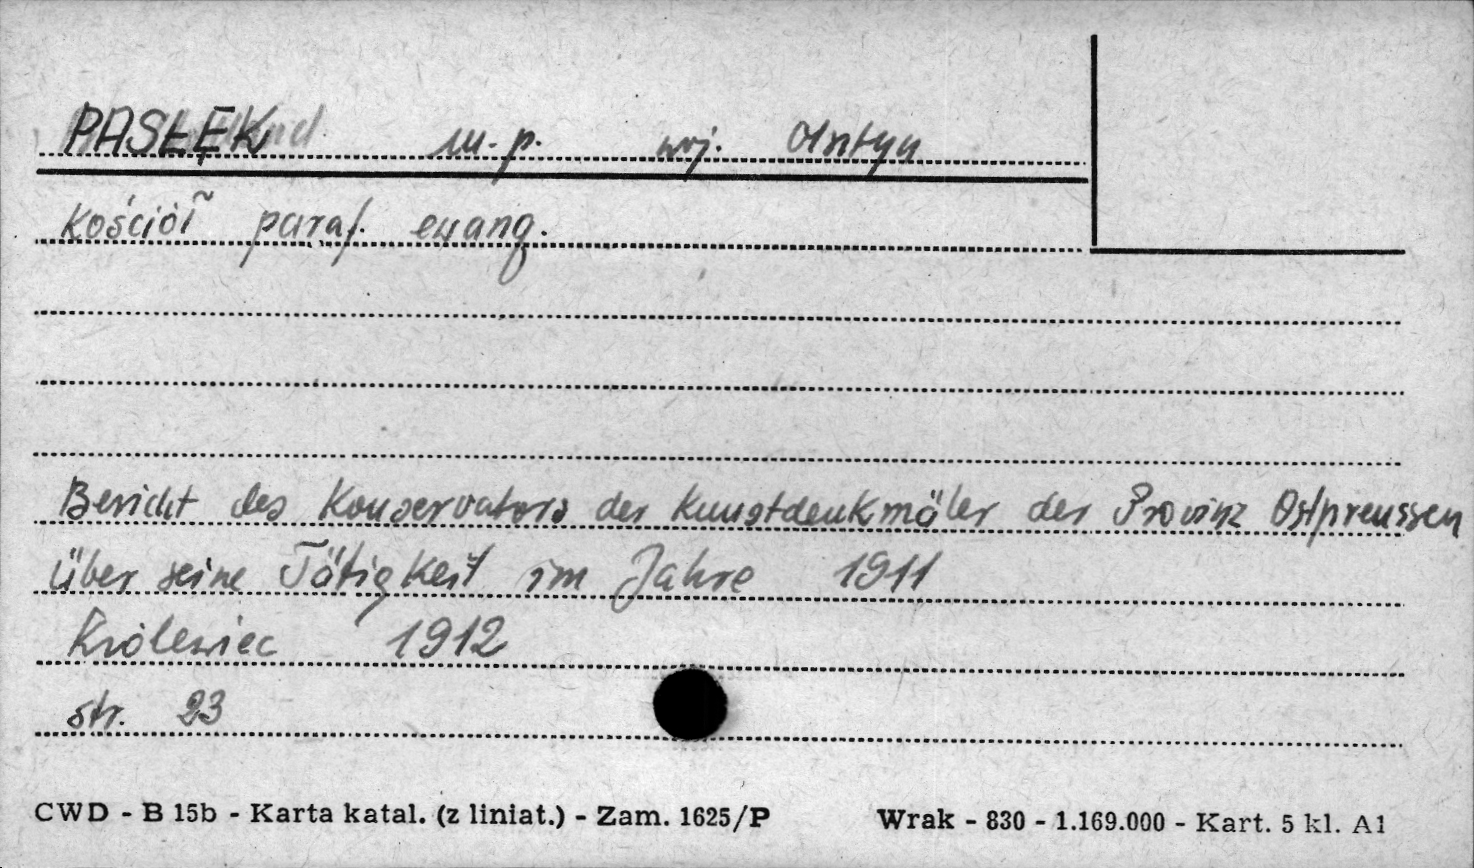 PASŁĘK m. p. woj. Olsztyn
Kościół paraf. ewang.
Bericht des Konservators der Kunstdenkmäler der Provinz Ostpreussen
über seine Tätigkeit im Jahre 1911
Królewiec 1912
str. 23
CWD - B 15b - Karta katal. (z liniat.) - Zam. 1625/P Wrak - 830 - 1.169.000 - Kart. 5 kl. A1